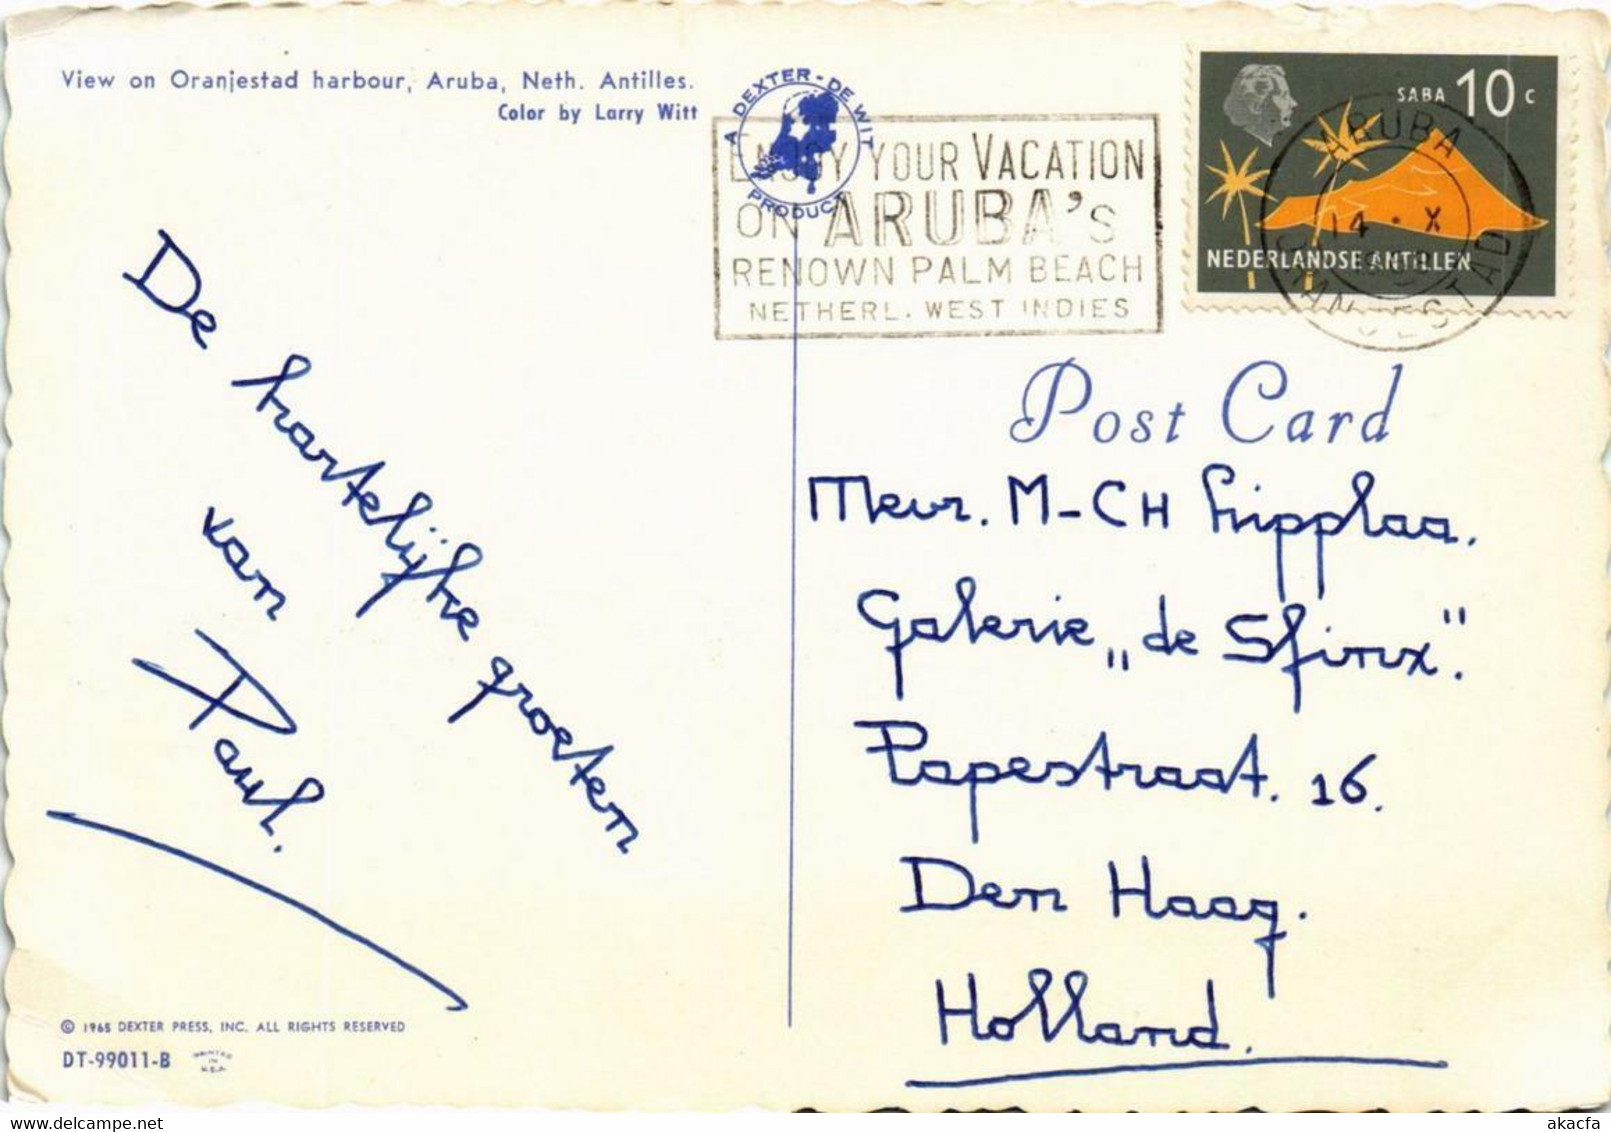 View on Oranjestad harbour, Aruba, Neth. Antilles.
Color by Larry Witt
A DEXTER-DE WIT
PRODUCT
ENJOY YOUR VACATION
ON ARUBA'S
RENOWN PALM BEACH
NETHERL. WEST INDIES
SABA 10 c
NEDERLANDSE ANTILLEN
ARUBA
14 · X
ORANJESTAD
Post Card
De hartelijke groeten
van
Paul.
Mevr. M-CH
Galerie „de Sfinx".
Papestraat. 16.
Den Haag.
Holland.
© 1965 DEXTER PRESS, INC. ALL RIGHTS RESERVED
DT-99011-B
PRINTED
IN
U.S.A.
akacfa